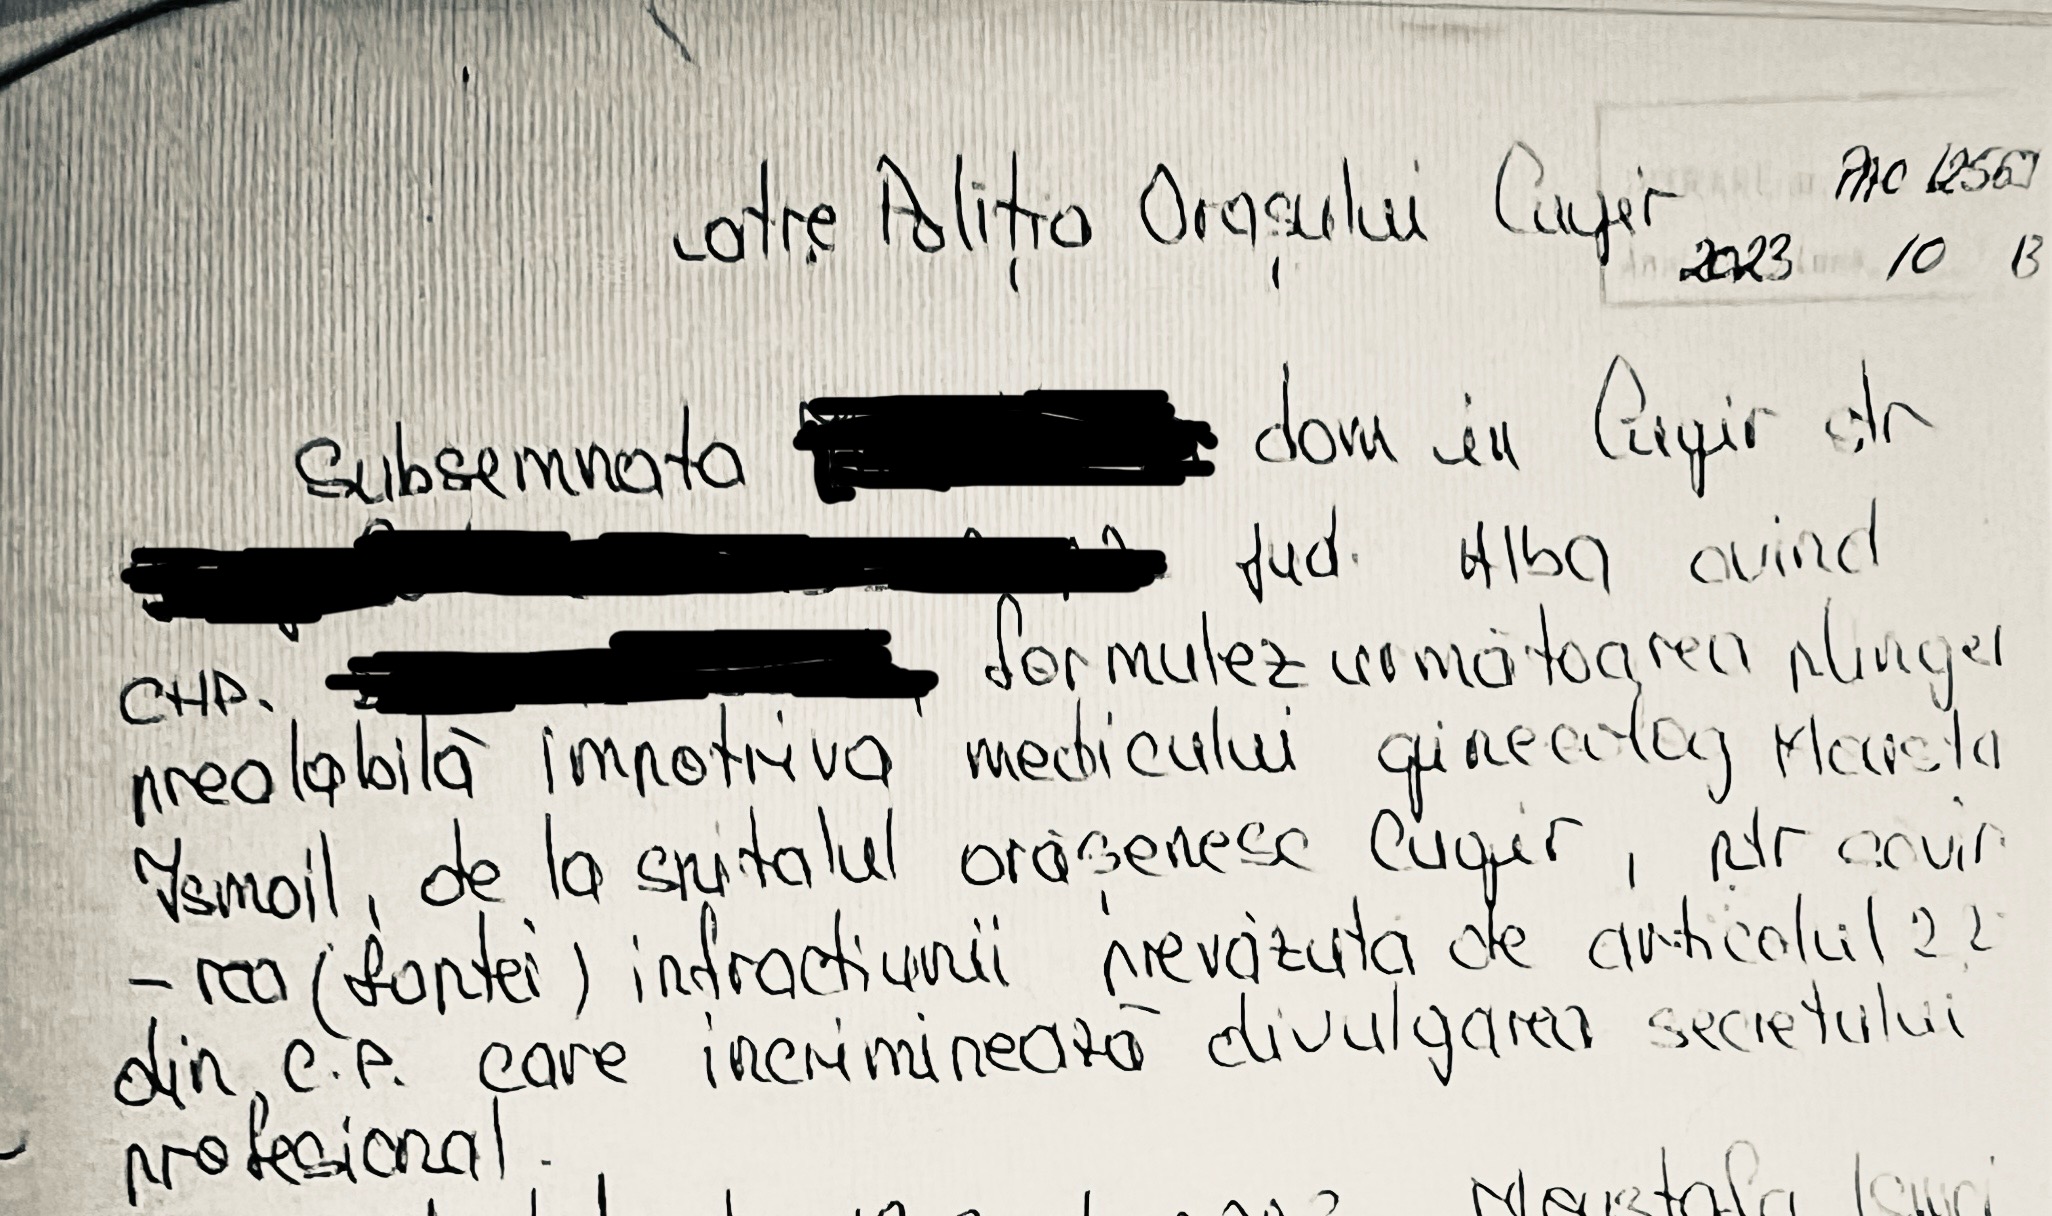 catre Poliția Orașului Cugir
2023 10 13
Subsemnata dom in Cugir str
Jud. Alba avind
CNP. formulez următoarea plinger
prealabilă impotriva medicului ginecolog
Ismail, de la spitalul orășenesc Cugir, ptr savir
-rea (faptei) infractiunii prevăzuta de articolul 22
din C.P. care incriminează divulgarea secretului
profesional.